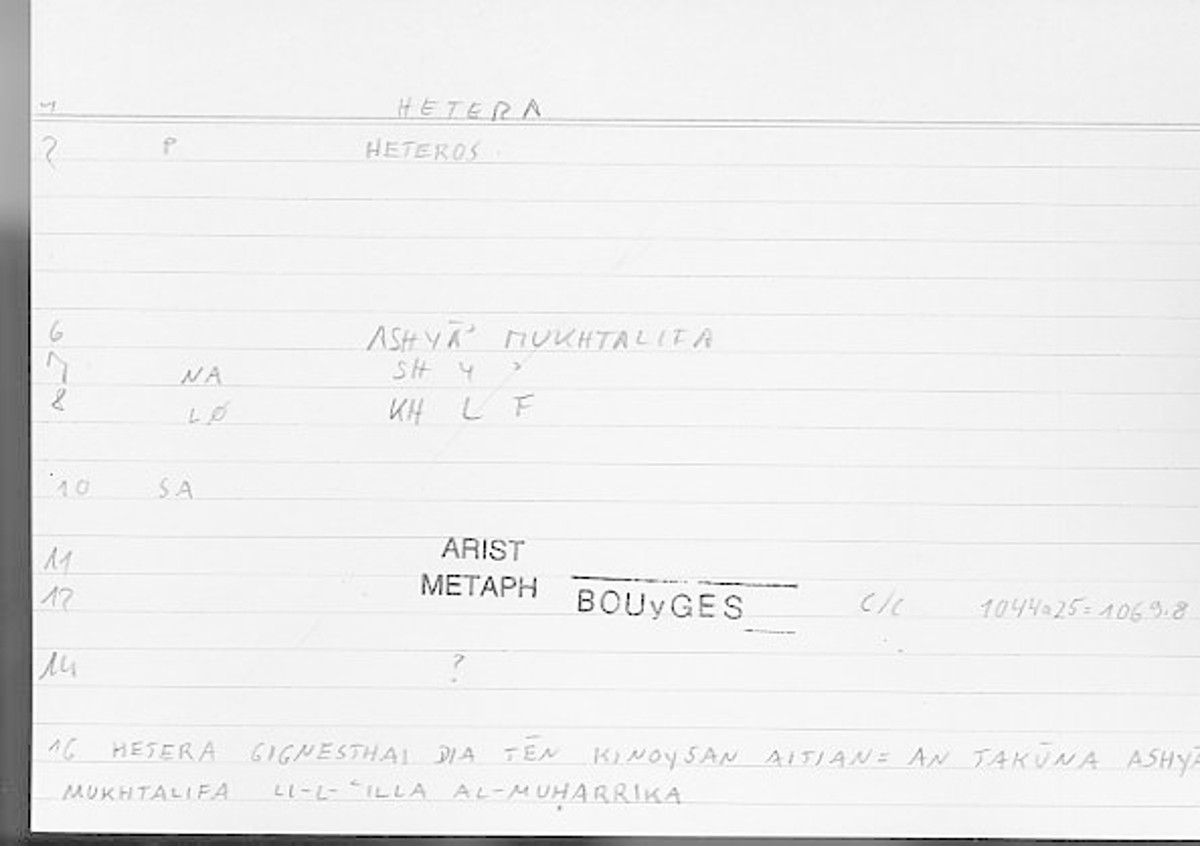 1 HETERA
2 P HETEROS
6 ASHYĀʾ MUKHTALIFA
7 NA SH Y ʾ
8 LØ KH L F
10 SA
11 ARIST
12 METAPH BOUyGES C/C 1044a25=1069.8
14 ?
16 HETERA GIGNESTHAI DIA TĒN KINOYSAN AITIAN= AN TAKŪNA ASHYĀ
MUKHTALIFA LI-L-ʿILLA AL-MUḤARRIKA